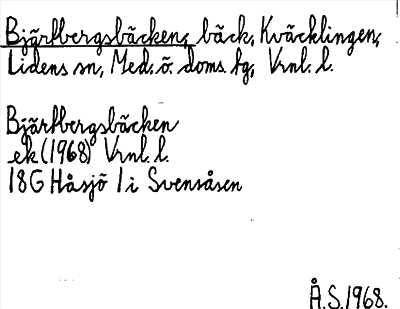 Bjärtbergsbäcken, bäck, Kväcklingen,
Lidens sn, Med. ö. doms. tg, Vrnl. l.
Bjärtbergsbäcken
ek (1968) Vrnl. l.
18G Håsjö 1 i Svensåsen
Å.S. 1968.